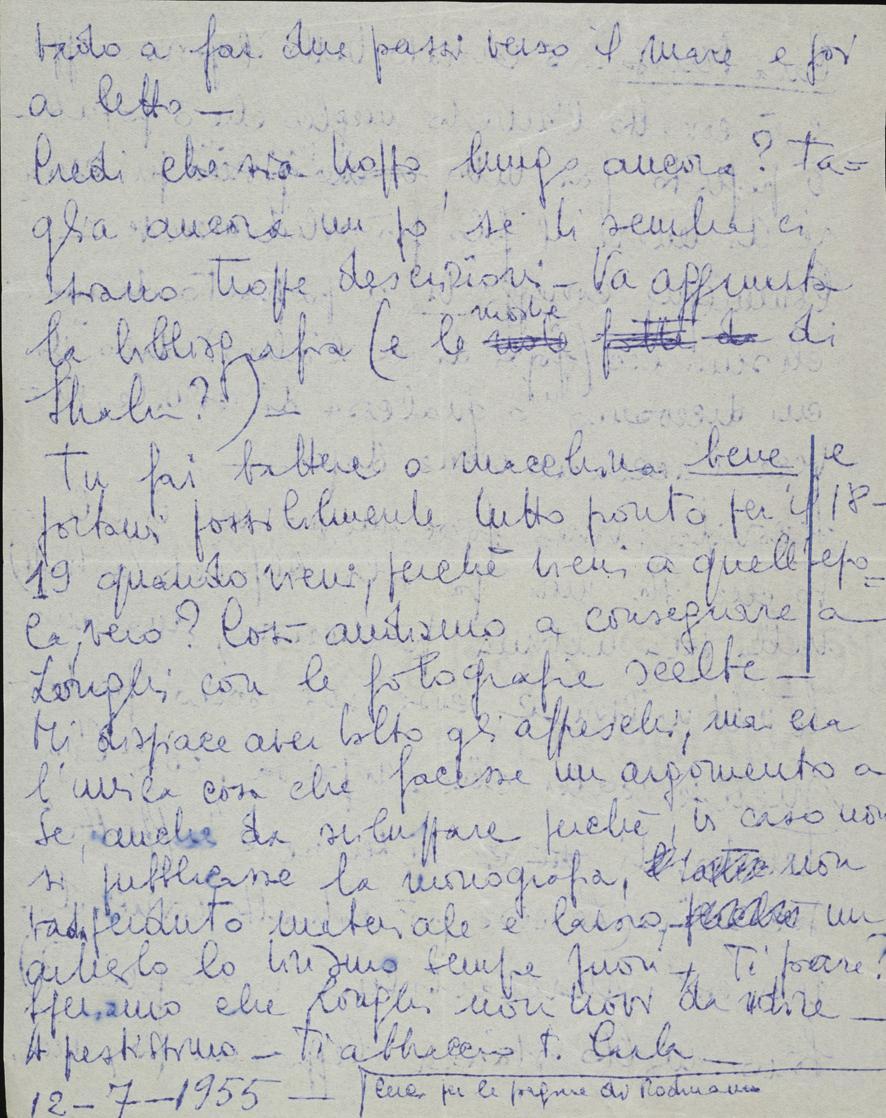 vado a far due passi verso il mare e poi
a letto —
Credi che sia troppo lungo ancora? Ta=
glia ancora un po' se ti sembra ci
siano troppe descrizioni — Va aggiunta
la bibliografia (e le mostre di
?) —
Tu fai battere a macchina bene e
portami possibilmente tutto pronto per il 18-
19 quando vieni, perchè vieni a quell'epo=
ca, vero? Così andiamo a consegnare a
Longhi con le fotografie scelte —
Mi dispiace aver tolto gli affreschi, ma era
l'unica cosa che facesse un argomento a
se, anche da sviluppare perchè, in caso non
si pubblicasse la monografia, non
vada perduto materiale e lavoro, un
articolo lo tiriamo sempre fuori — Ti pare?
Speriamo che Longhi non trovi da ridire —
A prestissimo — Ti abbraccio t. Carla —
12-7-1955 — per le pagine di